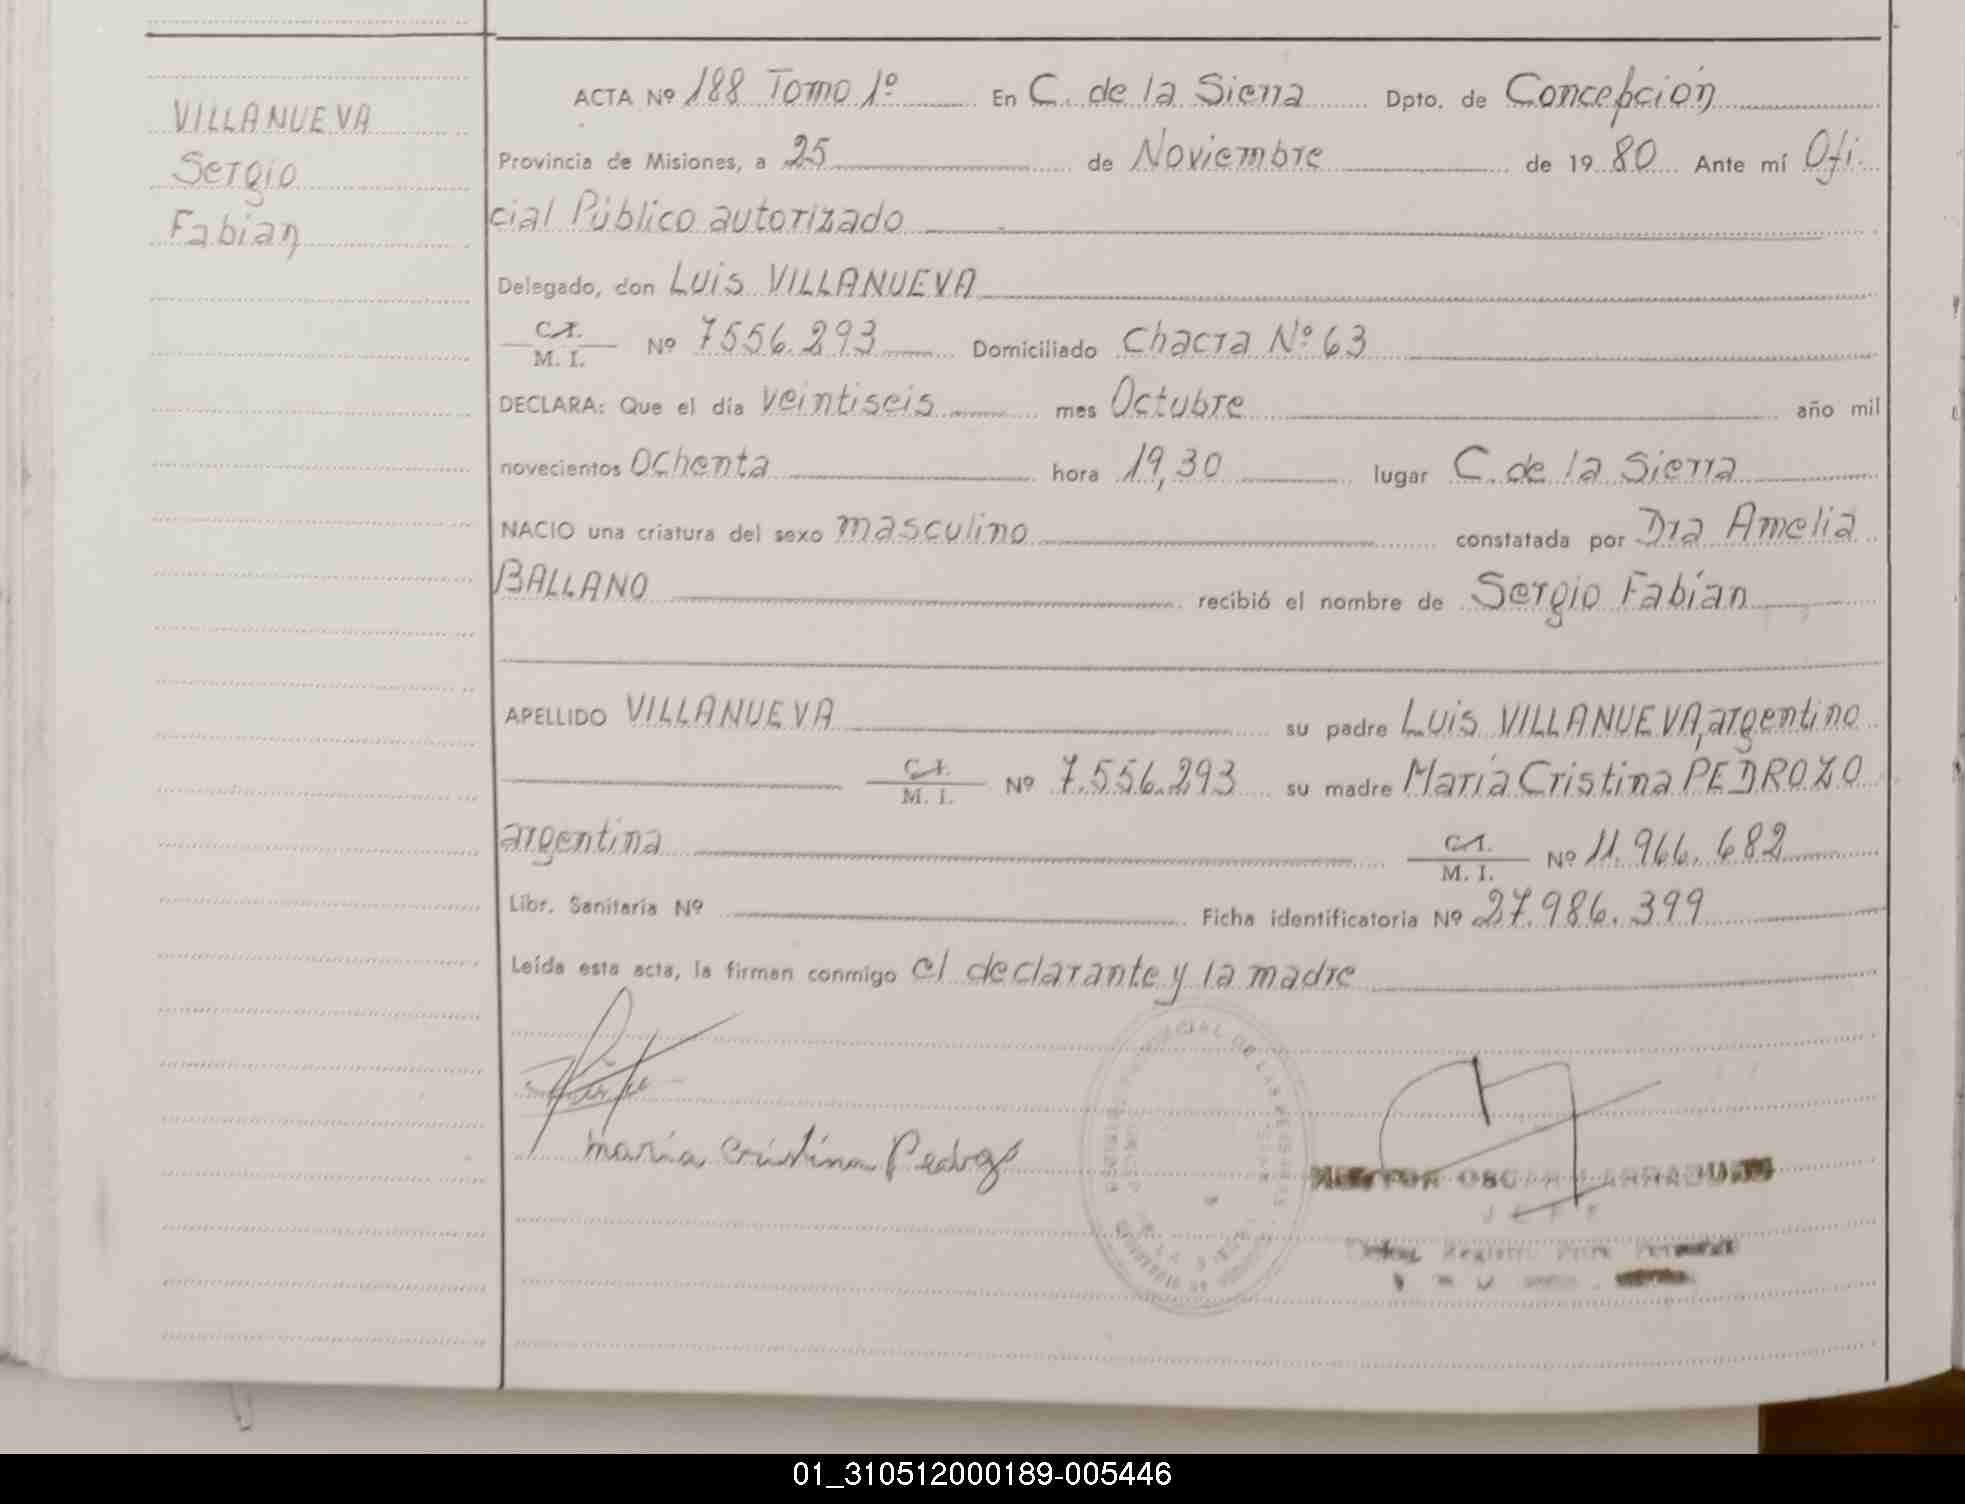 VILLANUEVA
Sergio
Fabian
ACTA Nº 188 Tomo 1º En C. de la Sierra Dpto. de Concepción
Provincia de Misiones, a 25 de Noviembre de 19 80 Ante mí Ofi-
cial Público autorizado
Delegado, don Luis VILLANUEVA
C.I.
M. I. Nº 7556.293 Domiciliado Chacra Nº 63
DECLARA: Que el día veintiseis mes Octubre año mil
novecientos ochenta hora 19,30 lugar C. de la Sierra
NACIO una criatura del sexo masculino constatada por Dra Amelia
BALLANO recibió el nombre de Sergio Fabián
APELLIDO VILLANUEVA su padre Luis VILLANUEVA, argentino
C.I.
M. I. Nº 7.556.293 su madre María Cristina PEDROZO
argentina C.I.
M. I. Nº 11.966.682
Libr. Sanitaria Nº Ficha identificatoria Nº 27.986.399
Leída esta acta, la firman conmigo el declarante y la madre
maría cristina Pedrozo
OSCAR
JEFE
01_310512000189-005446